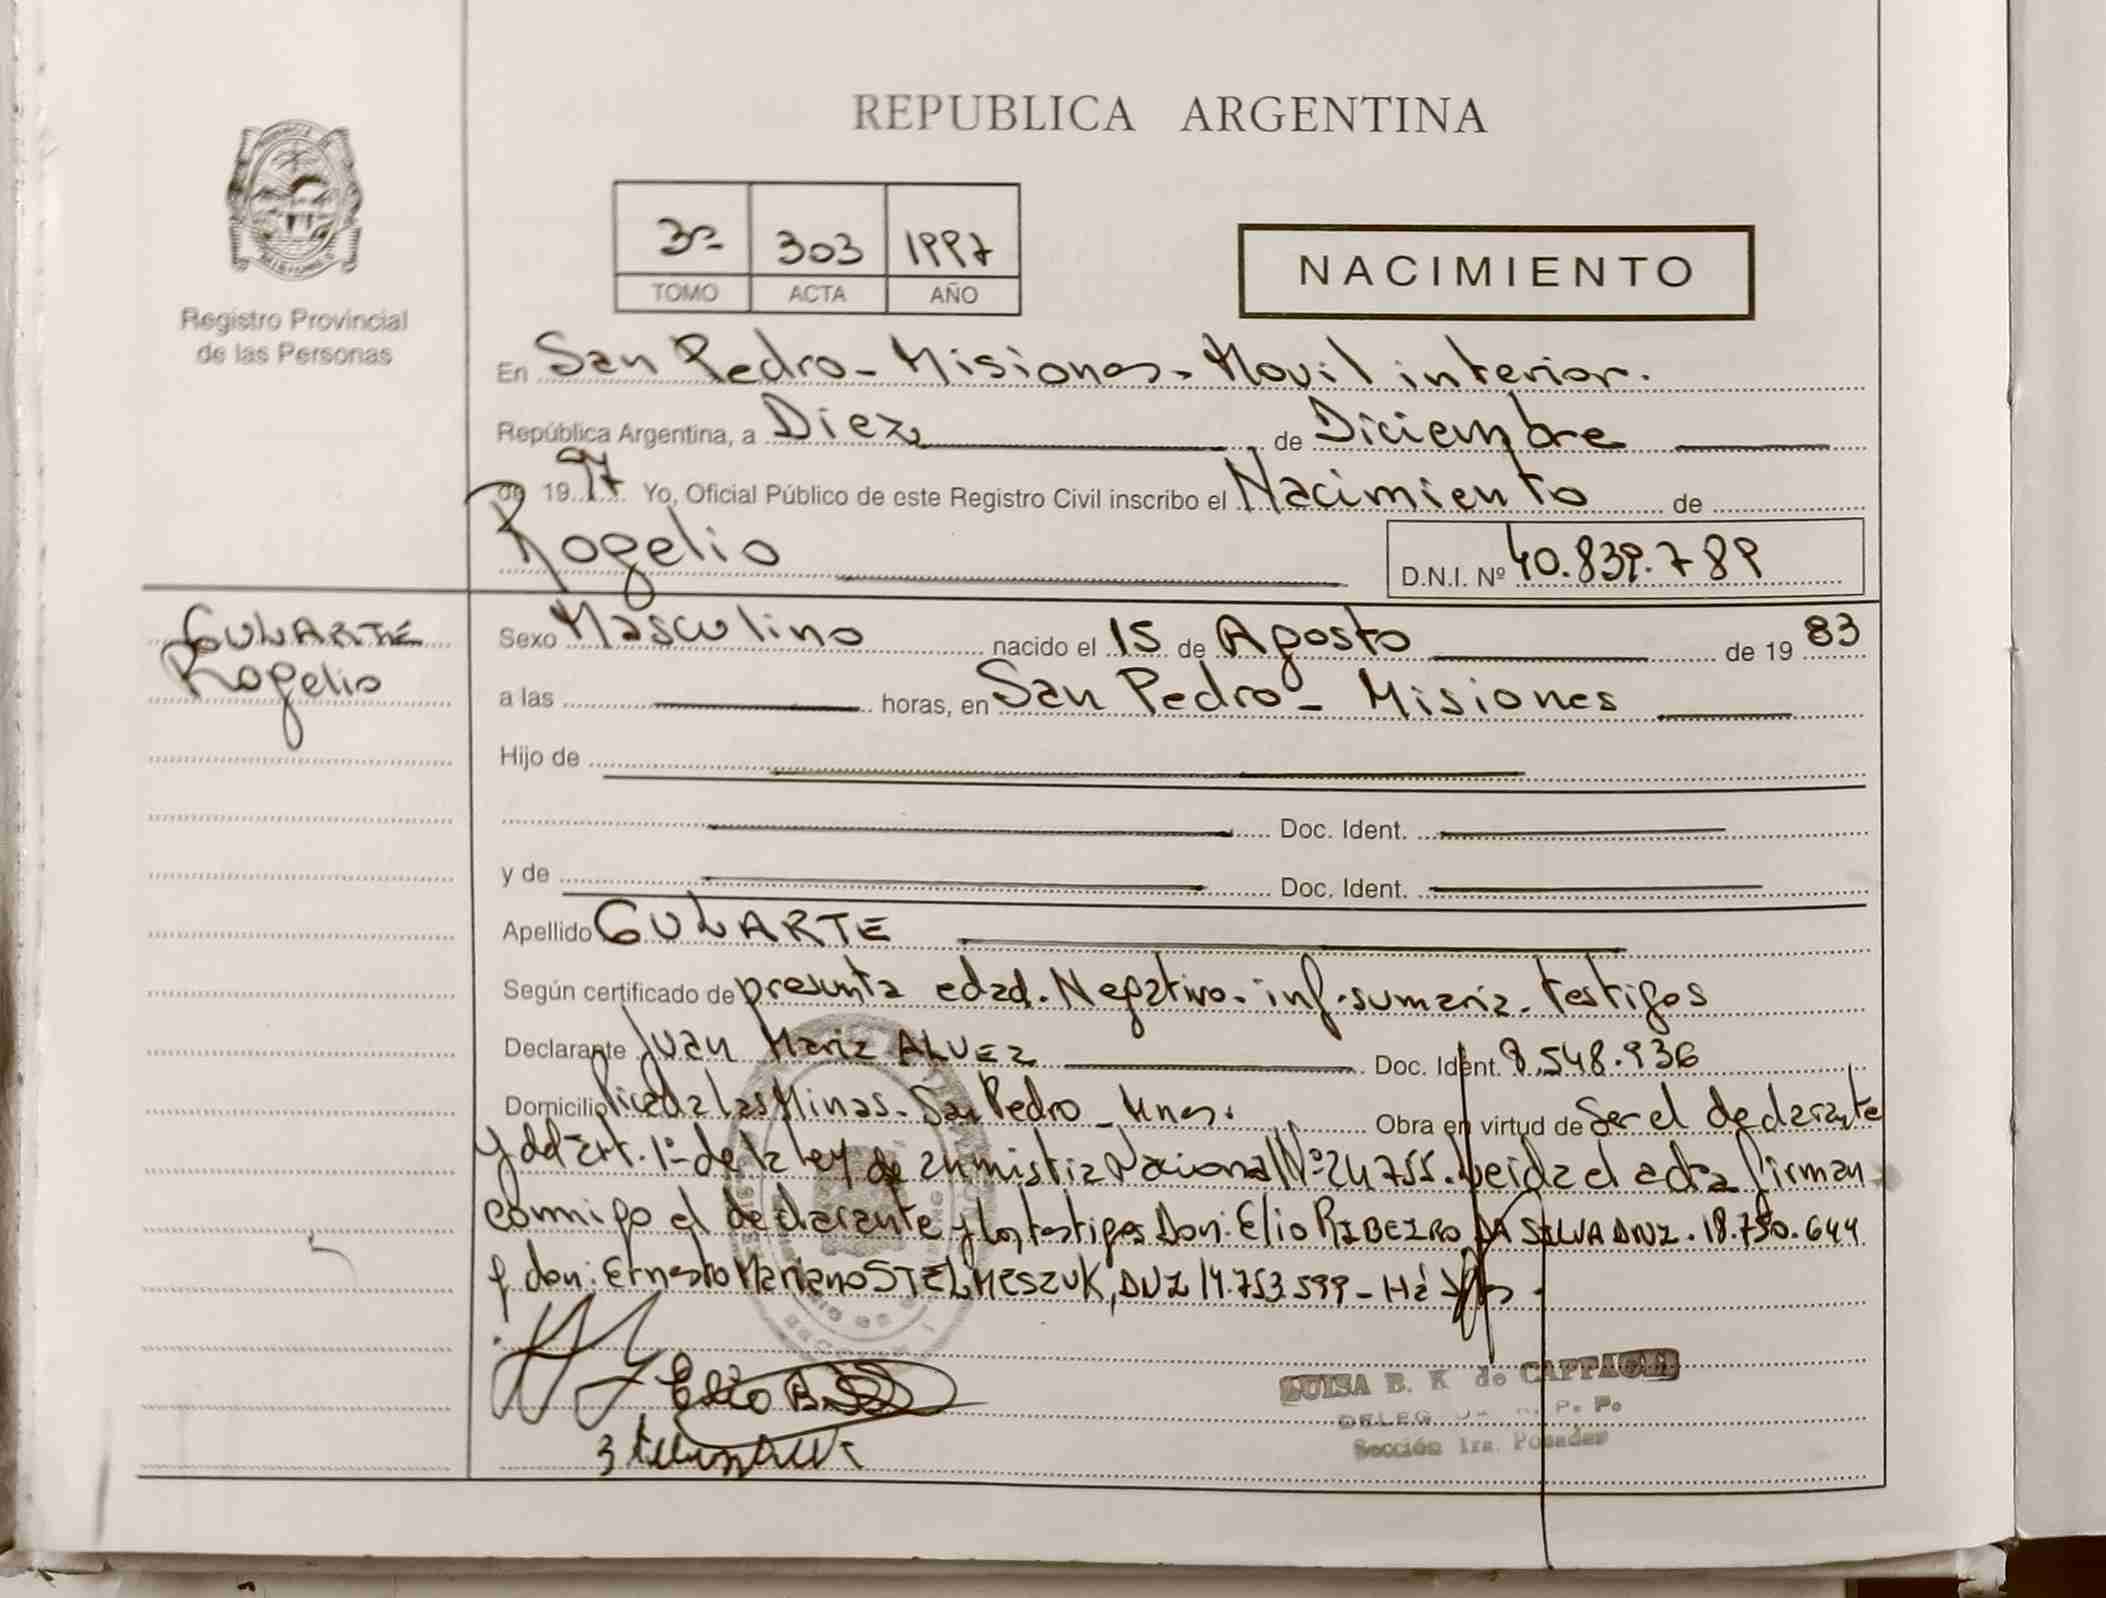 REPUBLICA ARGENTINA
3º 303 1997
TOMO ACTA AÑO
NACIMIENTO
Registro Provincial
de las Personas
En San Pedro - Misiones - Movil interior.
República Argentina, a Diez de Diciembre
de 1997 Yo, Oficial Público de este Registro Civil inscribo el Nacimiento de
Rogelio
D.N.I. Nº 40.839.789
GULARTE
Rogelio
Sexo Masculino nacido el 15 de Agosto de 1983
a las horas, en San Pedro - Misiones
Hijo de
Doc. Ident.
y de Doc. Ident.
Apellido GULARTE
Según certificado de presunta edad. Negativo. inf. sumaria. testigos
Declarante Juan Maria ALVEZ Doc. Ident. 8.548.936
Domicilio Picada las Minas. San Pedro - Mnes. Obra en virtud de Ser el declarante
y del art. 1º de la ley de anmistia Nacional Nº 24755. Leida el acta firman
conmigo el declarante y los testigos Don: Elio RIBEIRO DA SILVA DNI. 18.750.644
y don: Ernesto Mariano STELMESZUK, DNI 14.753.599 -
Elio
LUISA B. K de
DELEG R. P. P.
Sección 1ra. Posadas